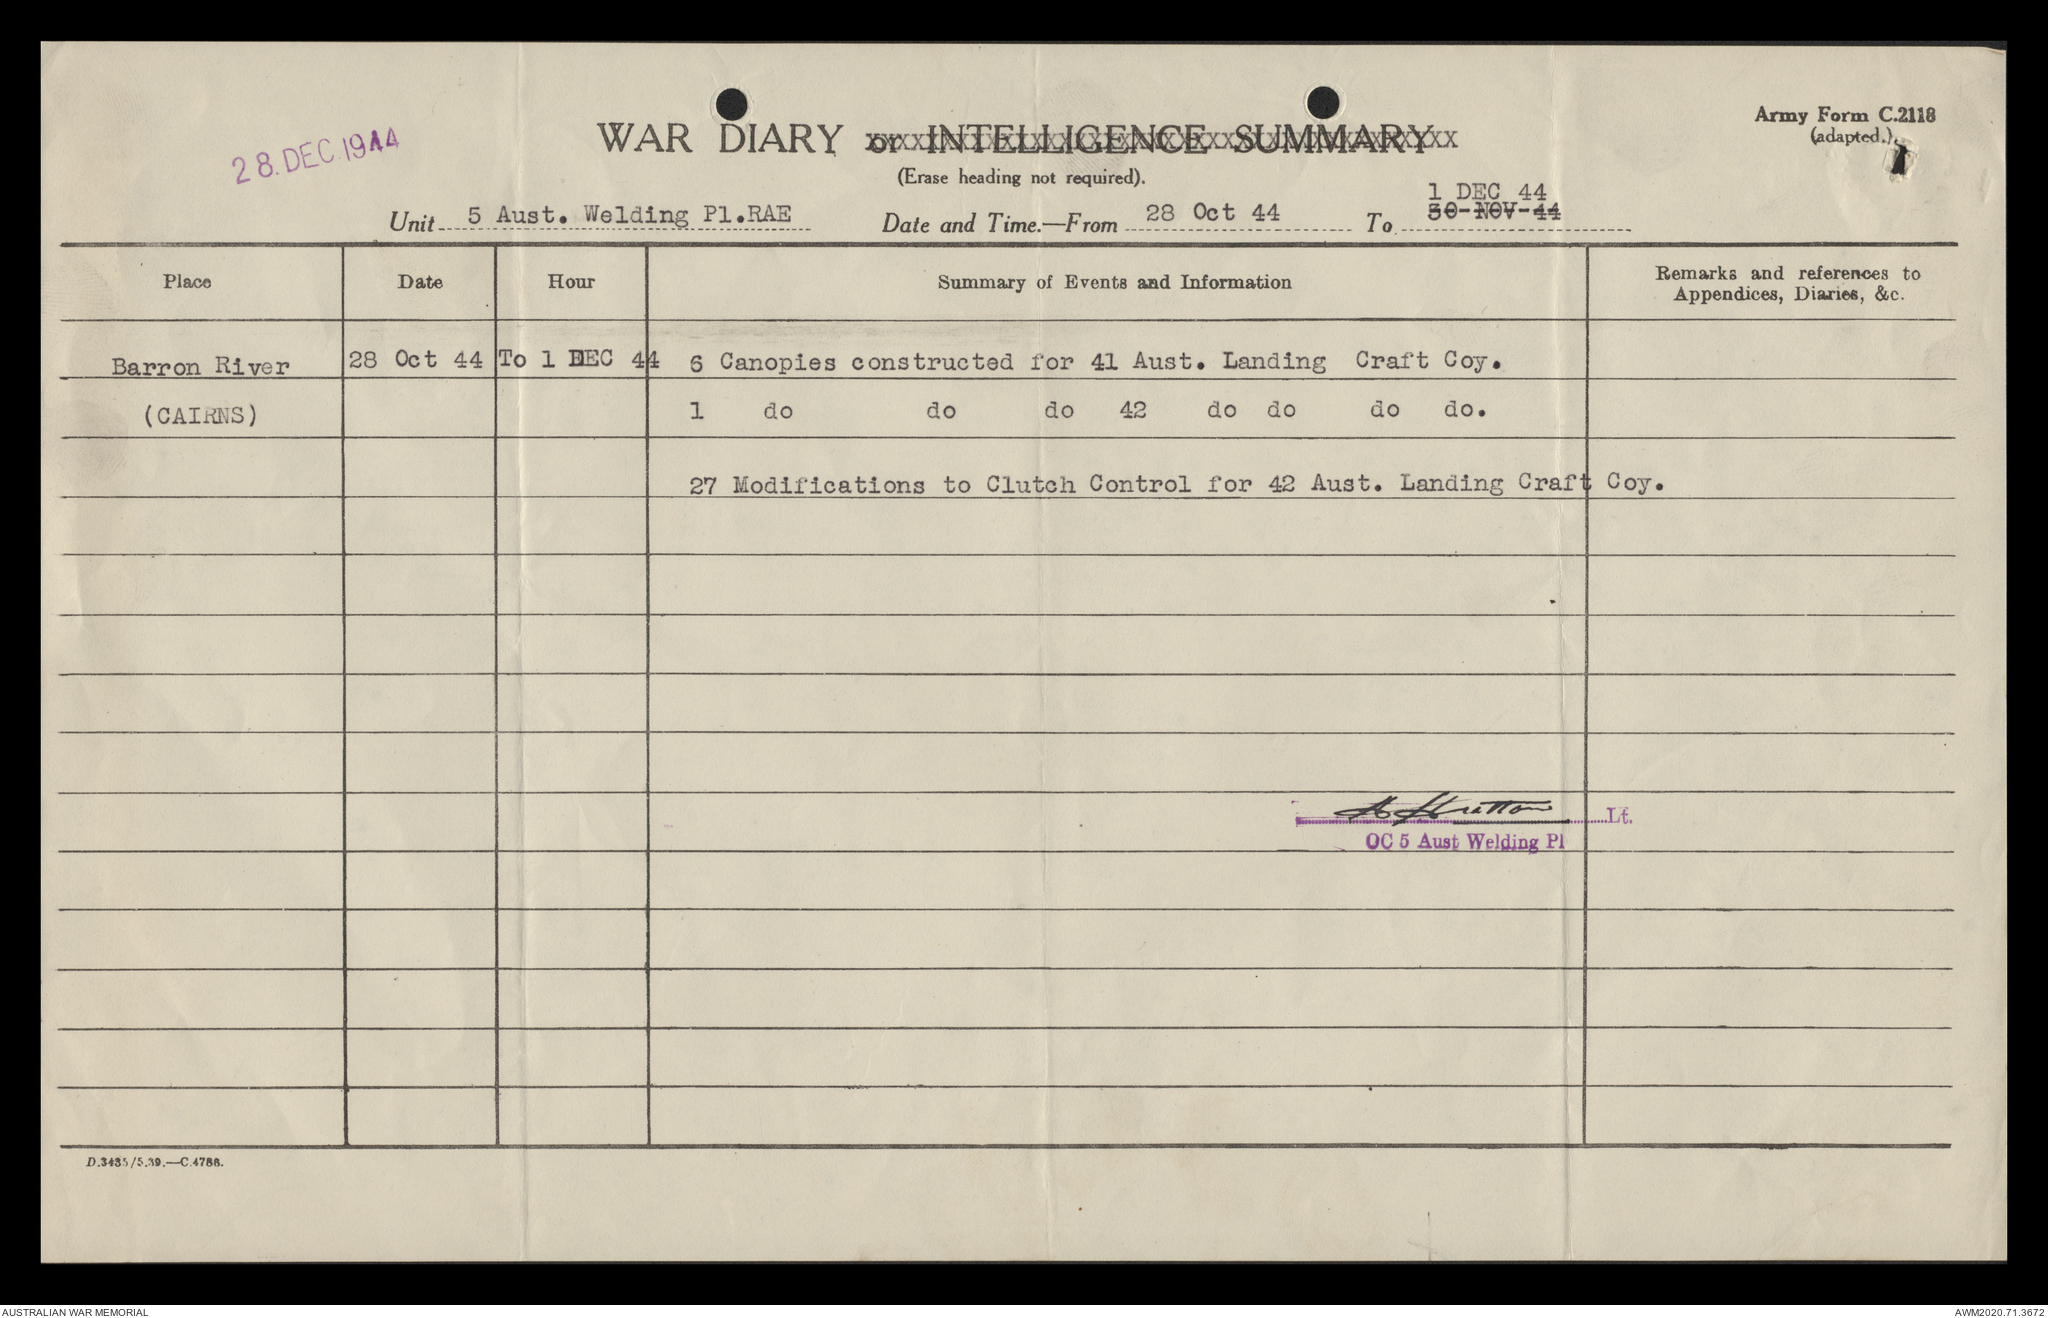 28. DEC. 1944
WAR DIARY or INTELLIGENCE SUMMARY
(Erase heading not required).
Army Form C.2118
(adapted.)
Unit 5 Aust. Welding Pl.RAE Date and Time.—From 28 Oct 44 To 30-NOV-44
1 DEC 44
Place Date Hour Summary of Events and Information Remarks and references to
Appendices, Diaries, &c.
Barron River 28 Oct 44 To 1 DEC 44 6 Canopies constructed for 41 Aust. Landing Craft Coy.
(CAIRNS) 1 do do do 42 do do do do.
27 Modifications to Clutch Control for 42 Aust. Landing Craft Coy.
Stratton Lt.
OC 5 Aust Welding Pl
D.3435/5.39.—C.4786.
AUSTRALIAN WAR MEMORIAL AWM2020.71.3672